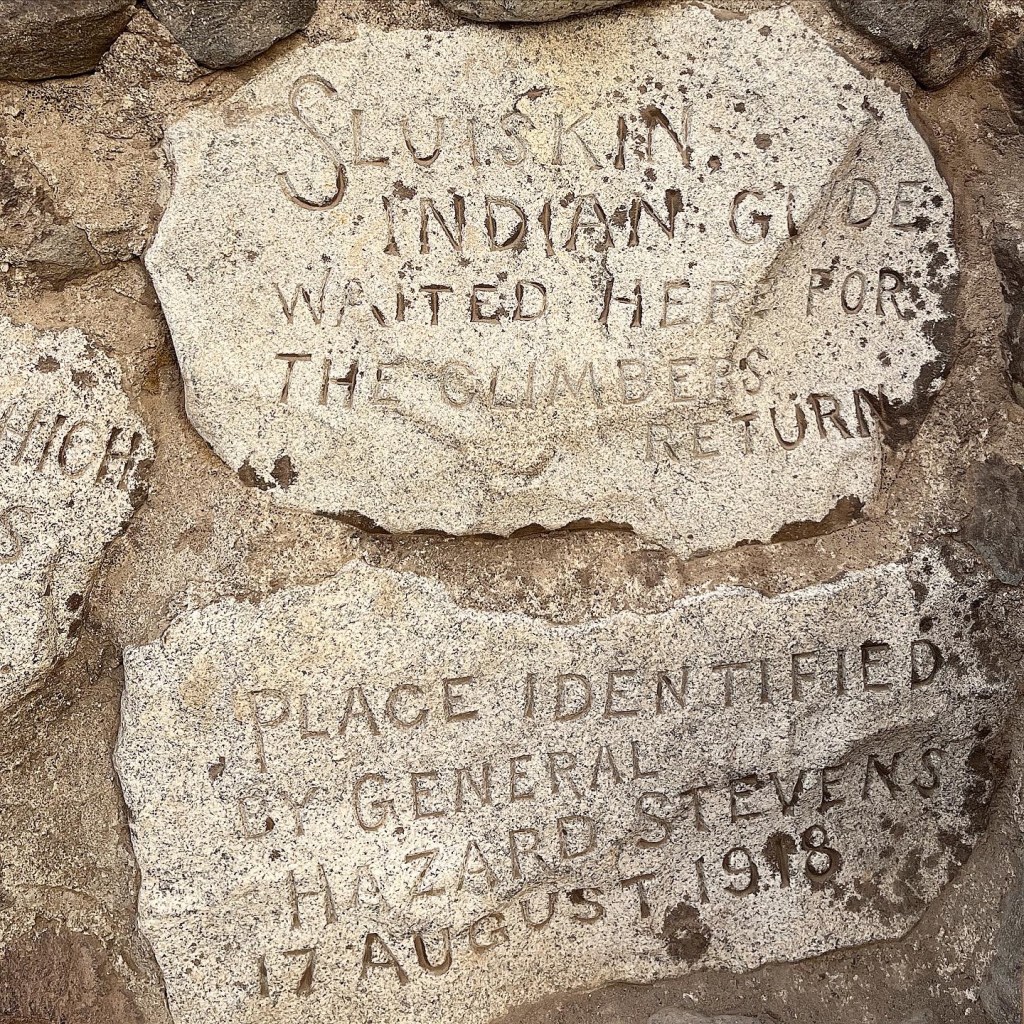 SLUISKIN,
INDIAN GUIDE
WAITED HERE FOR
THE CLIMBERS
RETURN
HICH
S
PLACE IDENTIFIED
BY GENERAL
HAZARD STEVENS
17 AUGUST 1918